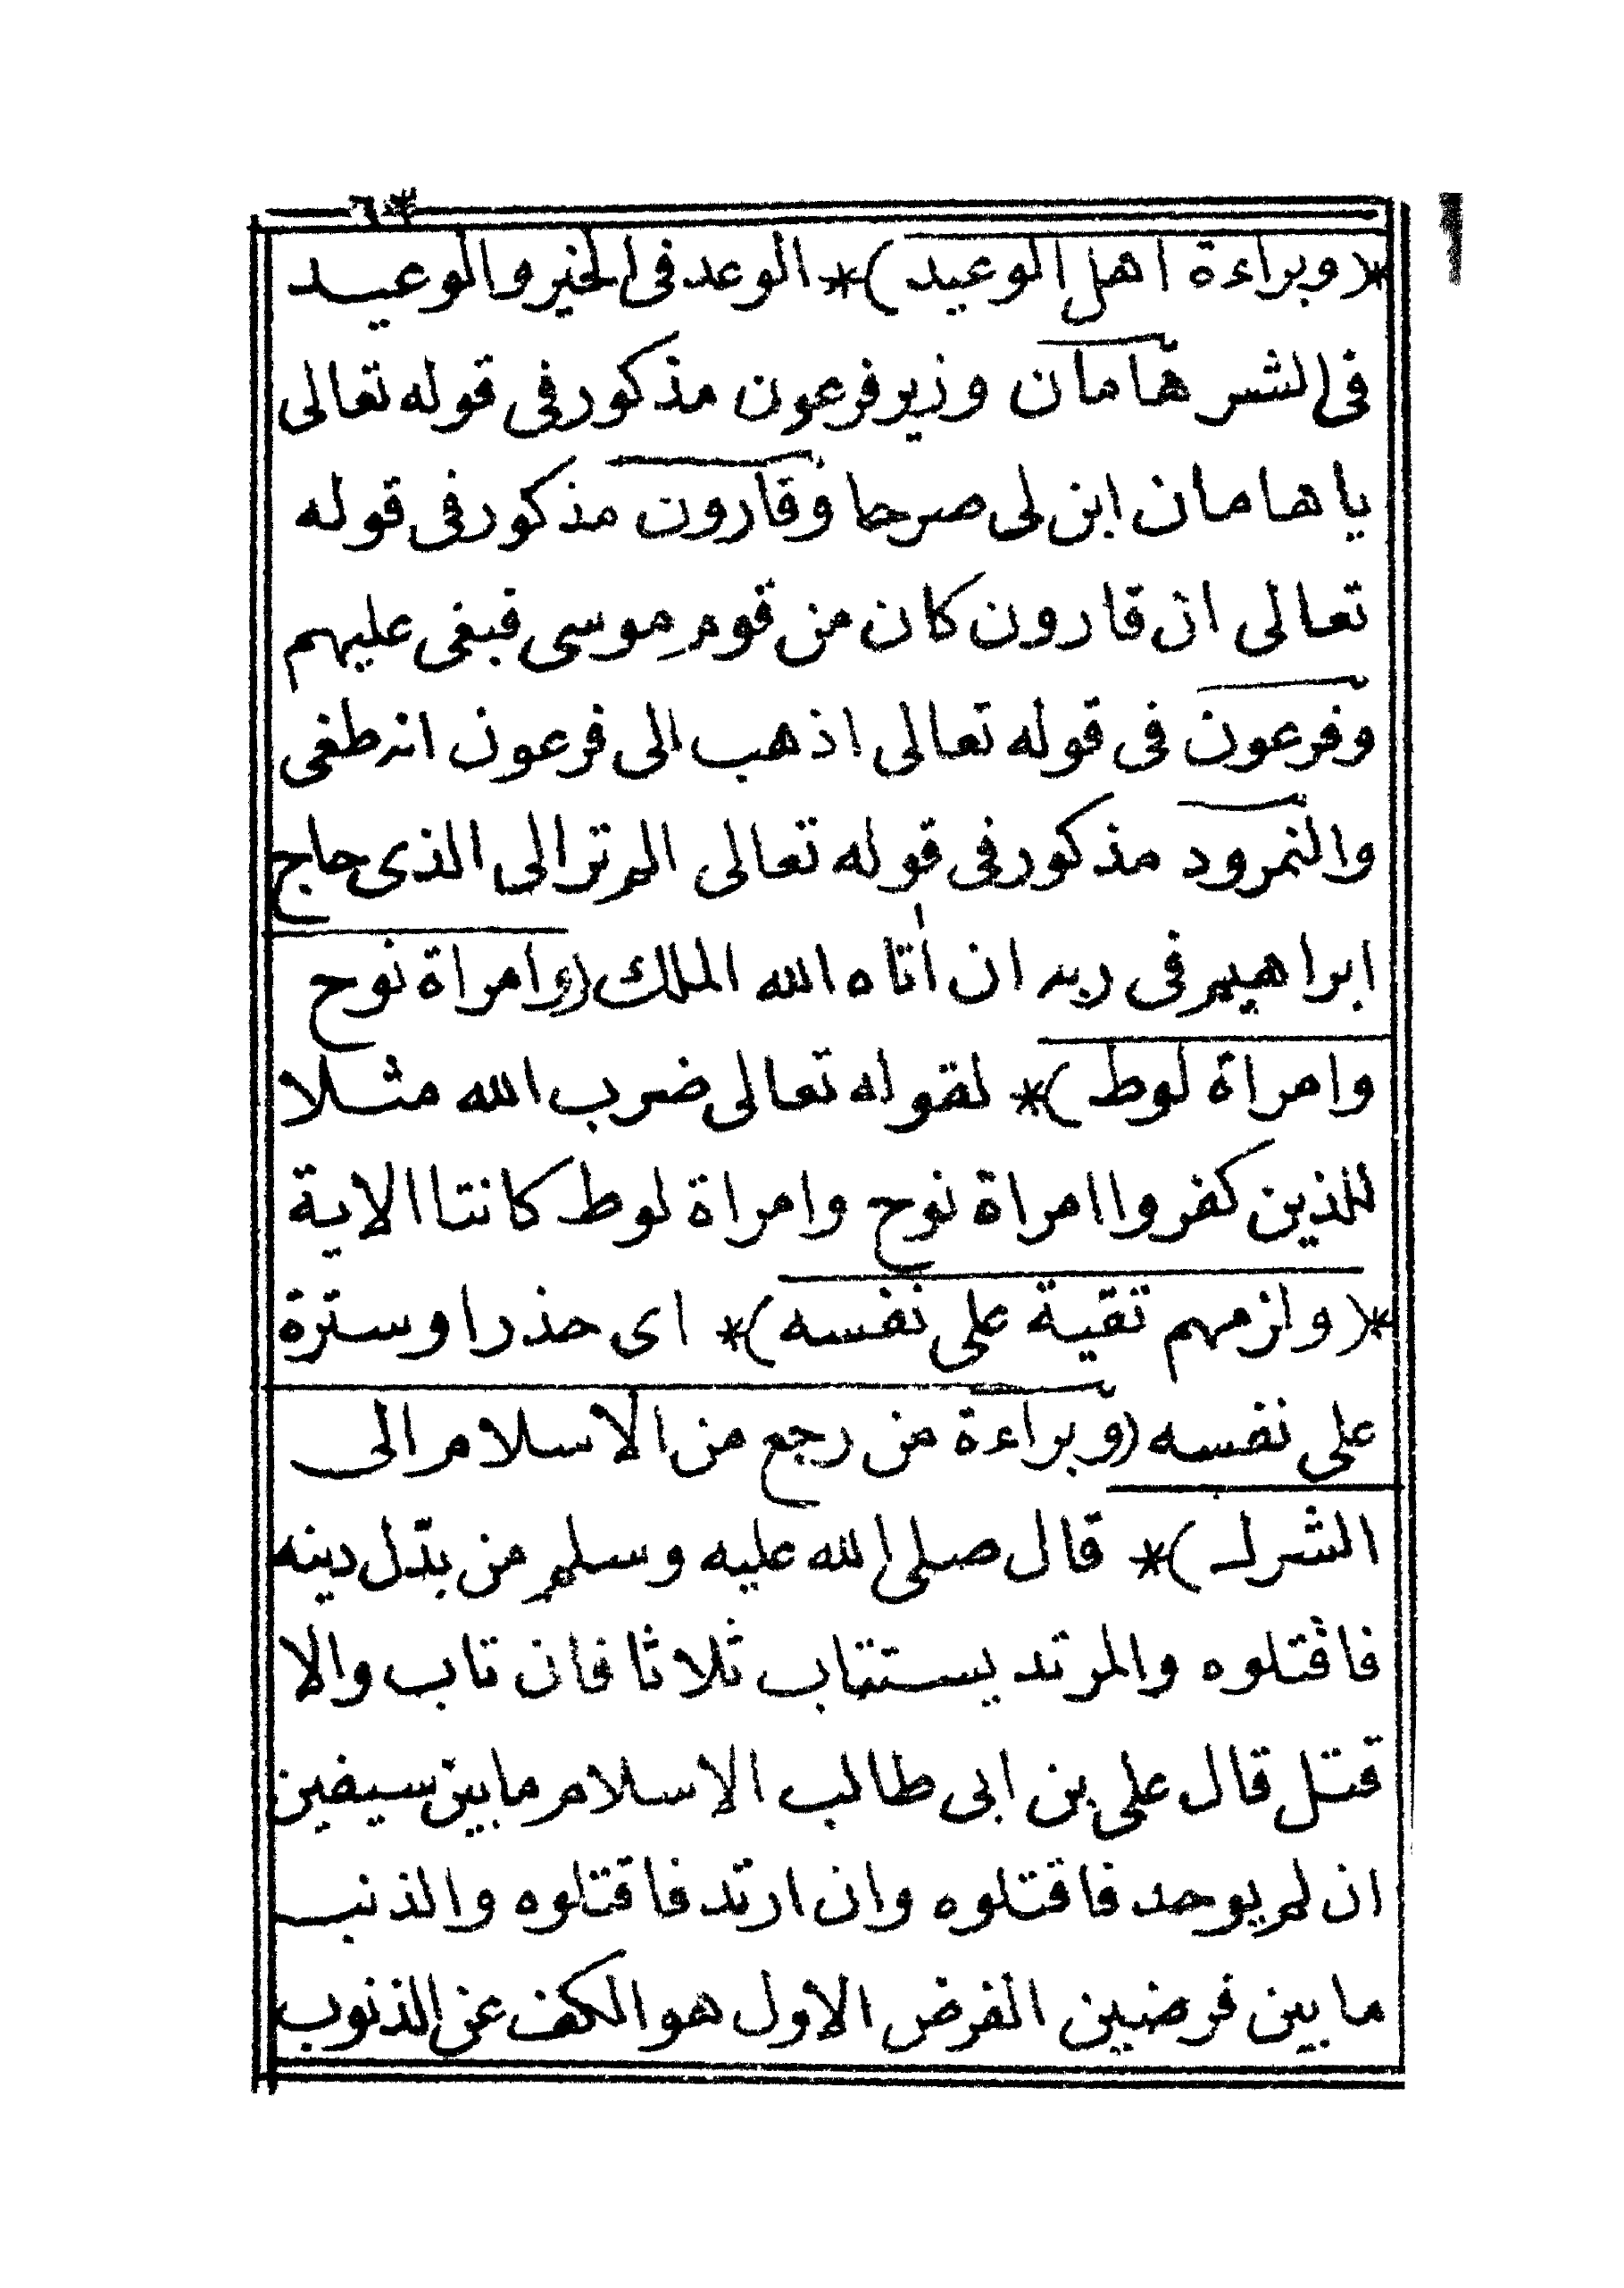 ٦٣
*(وبراءة اهل الوعيد)* الوعد فى الخير والوعيد
فى الشر هامان وزير فرعون مذكور فى قوله تعالى
ياهامان ابن لى صرحا وقارون مذكور فى قوله
تعالى ان قارون كان من قوم موسى فبغى عليهم
وفرعون فى قوله تعالى اذهب الى فرعون انه طغى
والنمرود مذكور فى قوله تعالى الم تر الى الذى حاج
ابراهيم فى ربه ان اتاه الله الملك (وامراة نوح
وامراة لوط)* لقوله تعالى ضرب الله مثلا
للذين كفروا امراة نوح وامراة لوط كانتا الاية
*(ولزمهم تقية على نفسه)* اى حذرا وسترة
على نفسه (وبراءة من رجع من الاسلام الى
الشرك)* قال صلى الله عليه وسلم من بدّل دينه
فاقتلوه والمرتد يستتاب ثلاثا فان تاب والا
قتل قال على بن ابى طالب الاسلام ما بين سيفين
ان لم يوحد فاقتلوه وان ارتد فاقتلوه والذنب
ما بين فرضين الفرض الاول هو الكف عن الذنوب